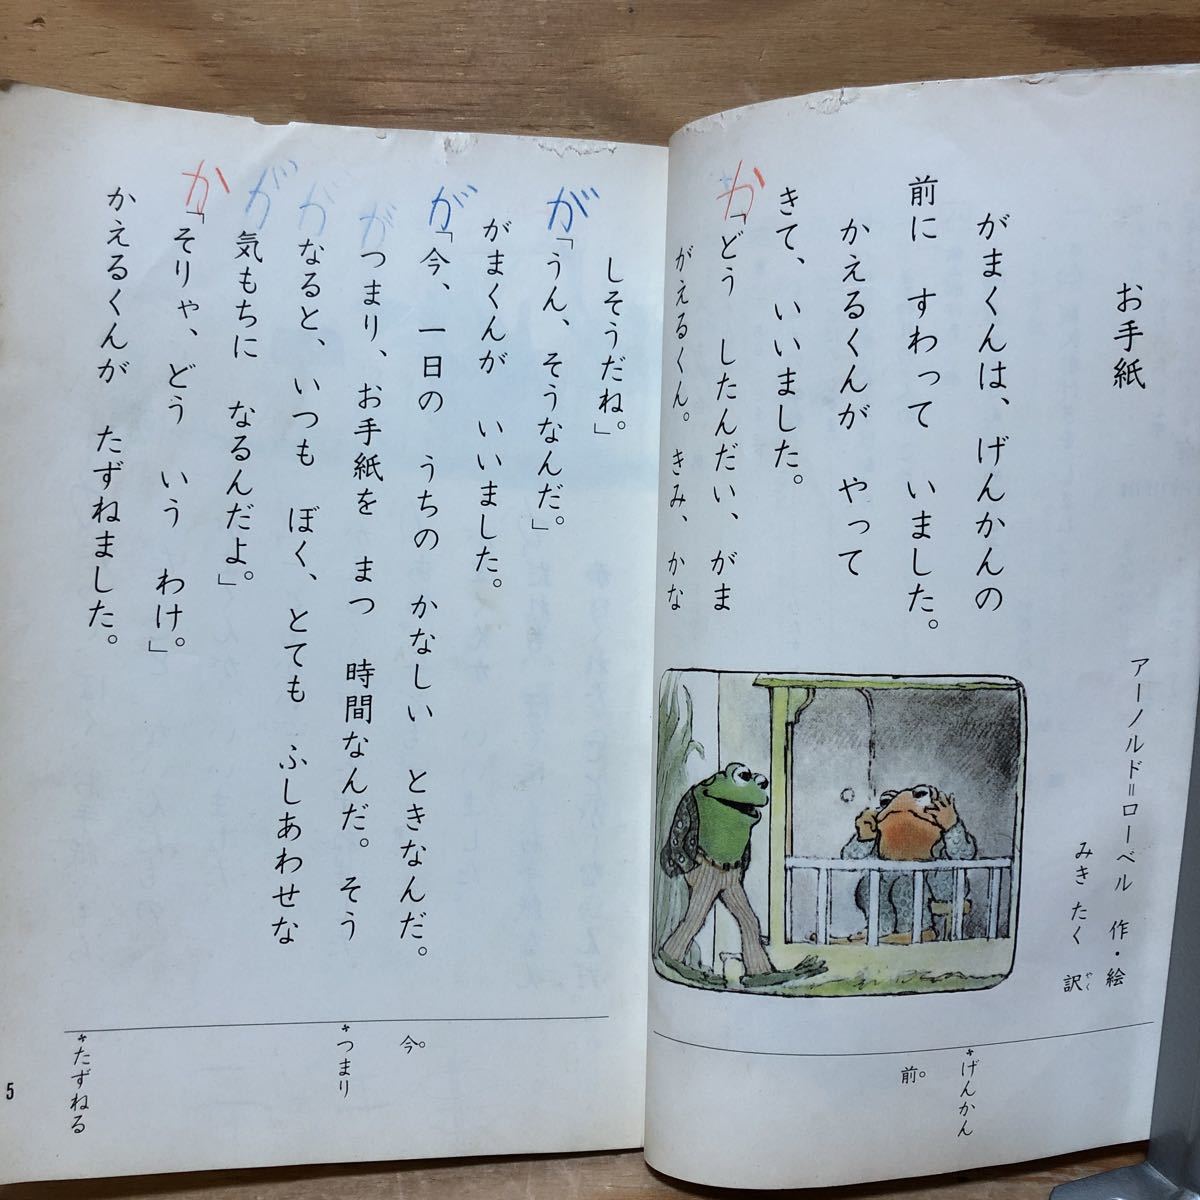 お手紙
アーノルド＝ローベル 作・絵
みき たく 訳
やく
がまくんは、げんかんの
前に すわって いました。
かえるくんが やって
きて、いいました。
か
「どう したんだい、がま
がえるくん。きみ、かな
＊げんかん
前。
しそうだね。」
が
「うん、そうなんだ。」
がまくんが いいました。
が
「今、一日の うちの かなしい ときなんだ。
が
つまり、お手紙を まつ 時間なんだ。そう
が
なると、いつも ぼく、とても ふしあわせな
が
気もちに なるんだよ。」
か
「そりゃ、どう いう わけ。」
かえるくんが たずねました。
今。
＊つまり
＊たずねる
5